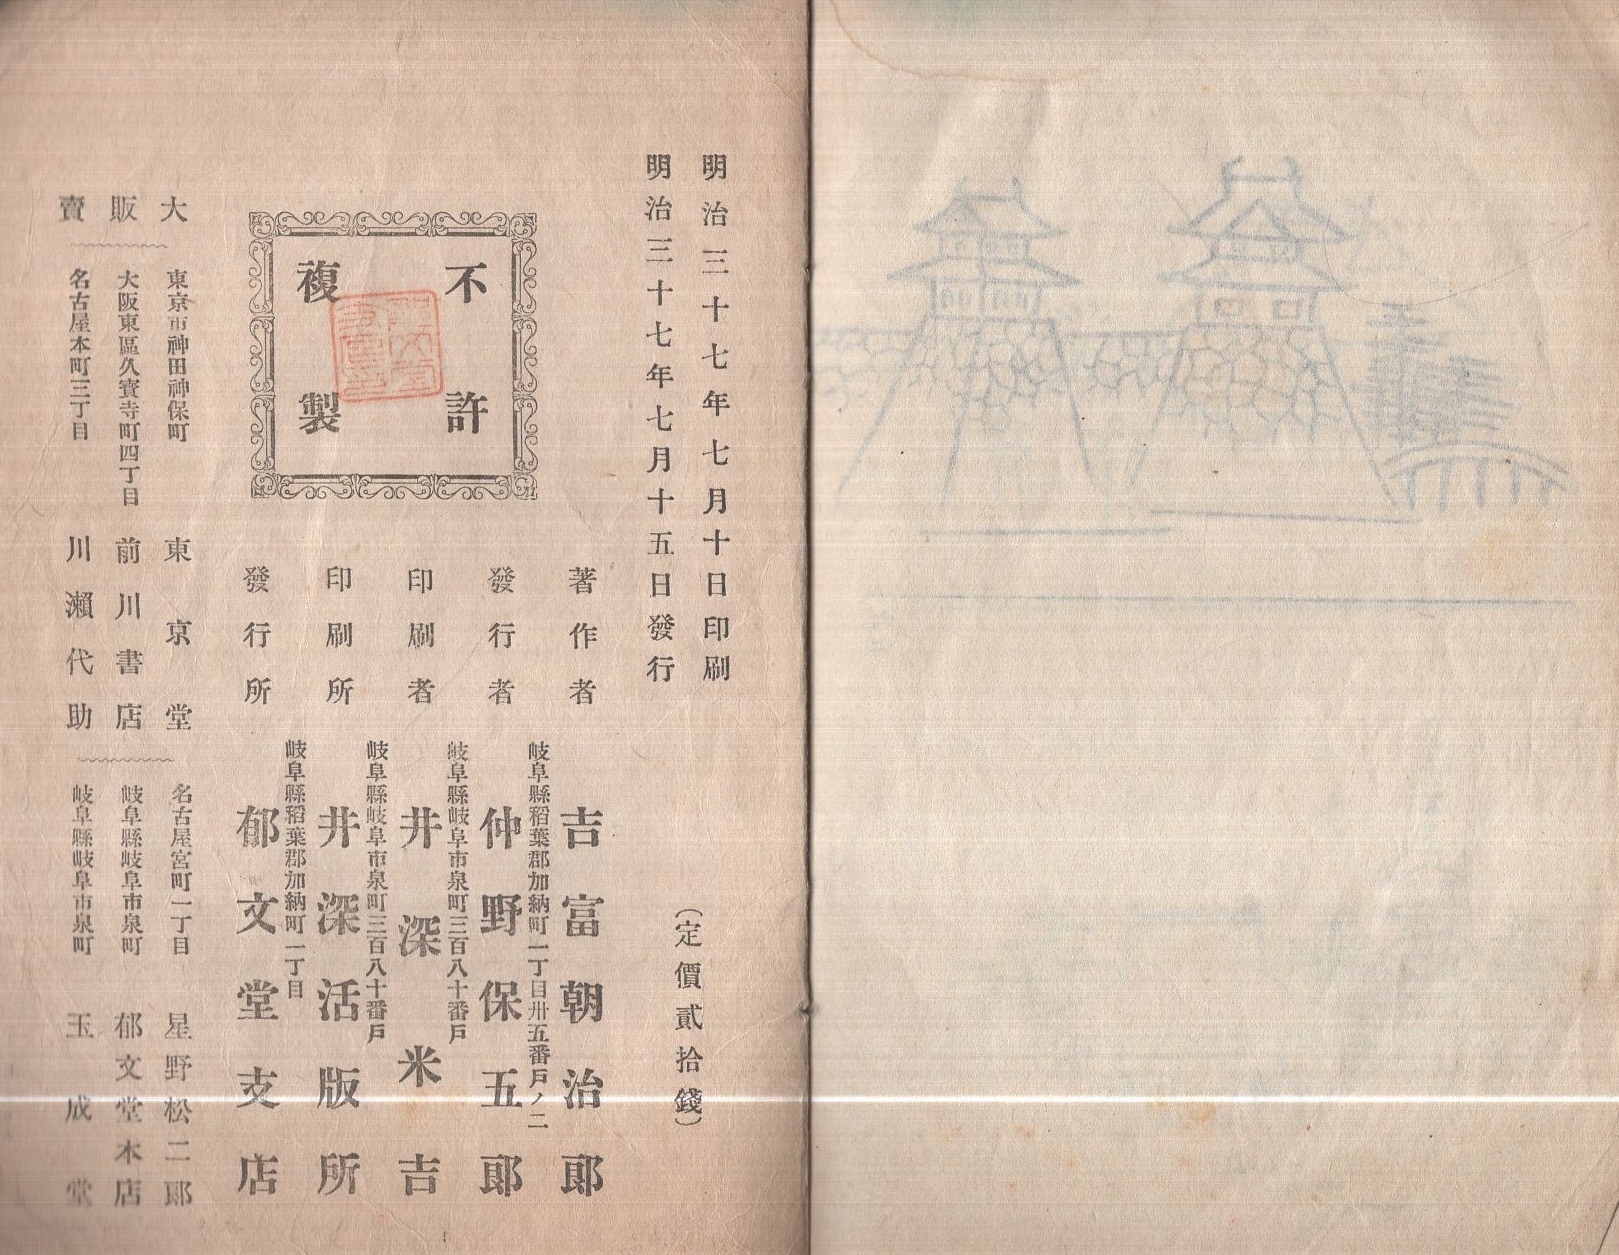 明治三十七年七月十日印刷
明治三十七年七月十五日發行
（定價貳拾錢）
不許
複製
著作者
吉富朝治郎
岐阜縣稻葉郡加納町一丁目卅五番戸ノ二
發行者
仲野保五郎
岐阜縣岐阜市泉町三百八十番戸
印刷者
井深米吉
岐阜縣岐阜市泉町三百八十番戸
印刷所
井深活版所
岐阜縣稻葉郡加納町一丁目
發行所
郁文堂支店
大販賣
東京市神田神保町
東京堂
大阪東區久寳寺町四丁目
前川書店
名古屋本町三丁目
川瀨代助
名古屋宮町一丁目
星野松二郎
岐阜縣岐阜市泉町
郁文堂本店
岐阜縣岐阜市泉町
玉成堂